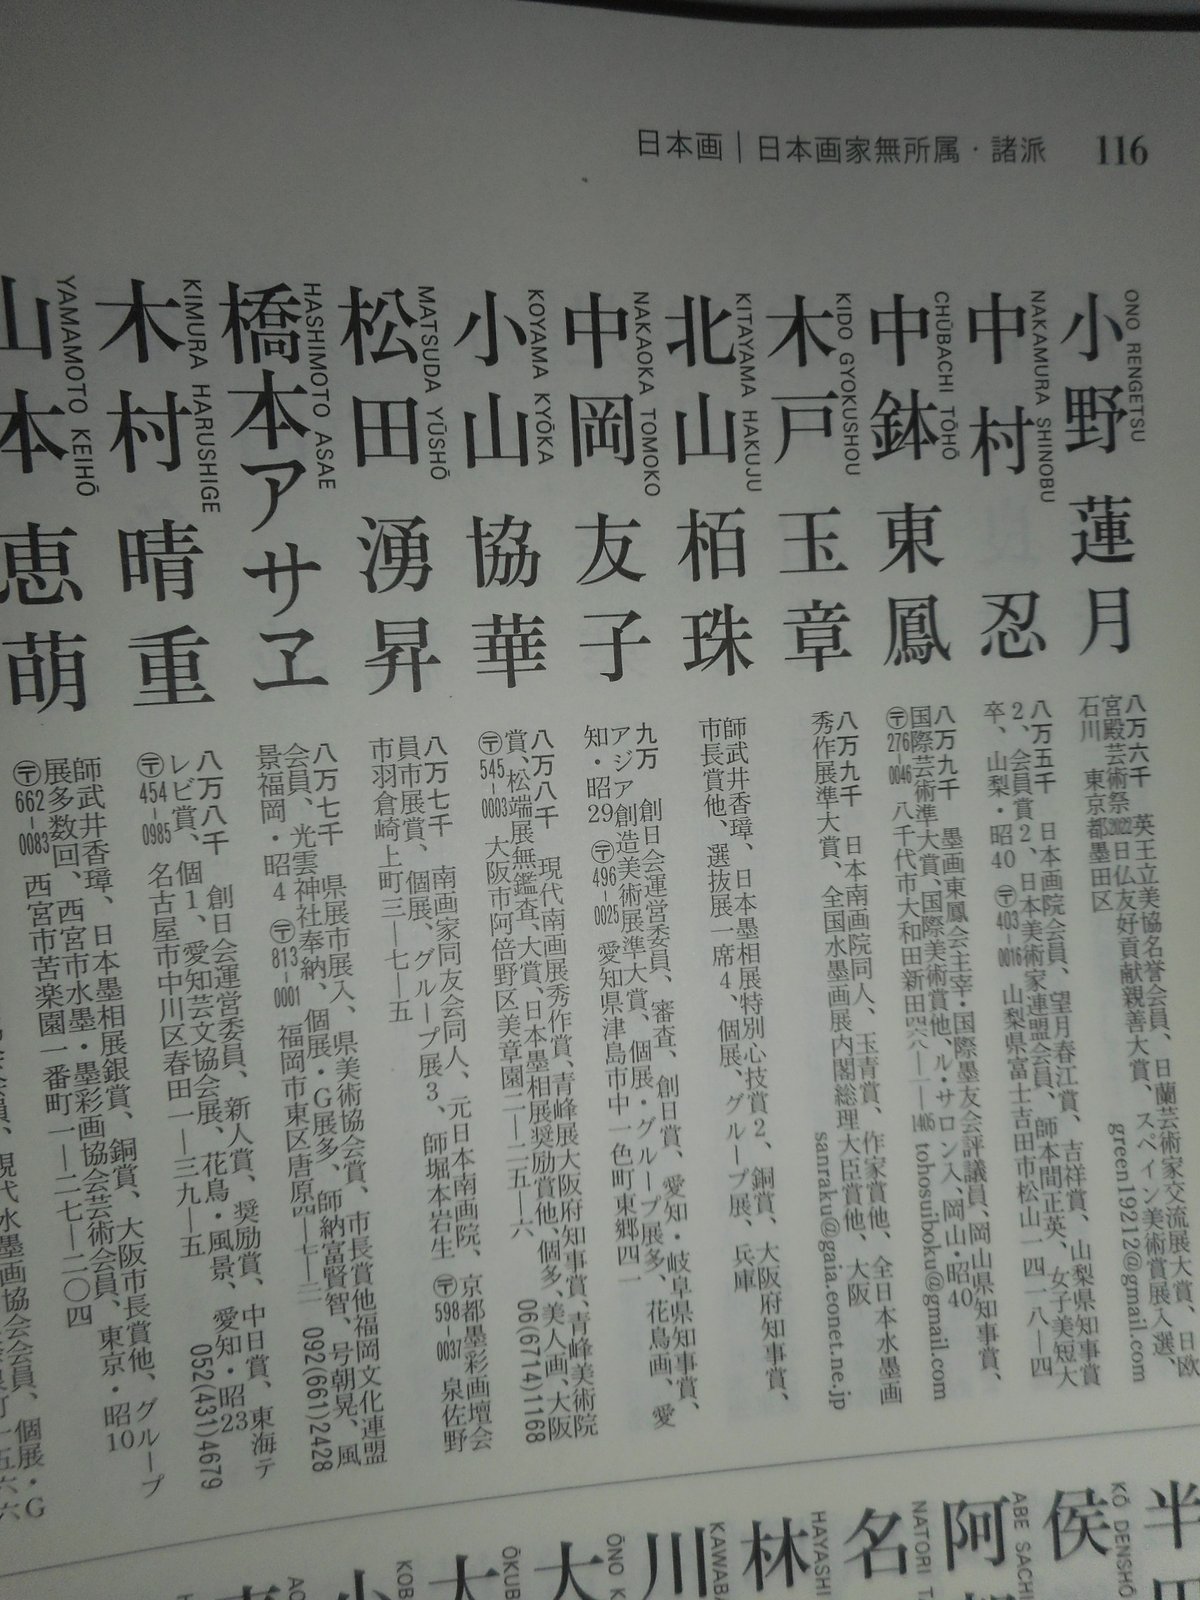 日本画｜日本画家無所属・諸派 116
小野蓮月
ONO RENGETSU
八万六千 英王立美協名誉会員、日蘭芸術家交流展大賞、日欧
宮殿芸術祭2022日仏友好貢献親善大賞、スペイン美術賞展入選、
石川 東京都墨田区 green19212@gmail.com
中村忍
NAKAMURA SHINOBU
八万五千 日本画院会員、望月春江賞、吉祥賞、山梨県知事賞
2、会員賞2、日本美術家連盟会員、師本間正英、女子美短大
卒、山梨・昭40 〒403-0016 山梨県富士吉田市松山一四一八―四
中鉢東鳳
CHŪBACHI TŌHŌ
八万九千 墨画東鳳会主宰・国際墨友会評議員、岡山県知事賞、
国際芸術準大賞、国際美術賞他、ル・サロン入、岡山・昭40
〒276-0046 八千代市大和田新田 tohosuiboku@gmail.com
木戸玉章
KIDO GYOKUSHOU
八万九千 日本南画院同人、玉青賞、作家賞他、全日本水墨画
秀作展準大賞、全国水墨画展内閣総理大臣賞他、大阪
sanraku@gaia.eonet.ne.jp
北山栢珠
KITAYAMA HAKUJU
師武井香璋、日本墨相展特別心技賞2、銅賞、大阪府知事賞、
市長賞他、選抜展一席4、個展、グループ展、兵庫
中岡友子
NAKAOKA TOMOKO
九万 創日会運営委員、審査、創日賞、愛知・岐阜県知事賞、
アジア創造美術展準大賞、個展・グループ展多、花鳥画、愛
知・昭29 〒496-0025 愛知県津島市中一色町東郷四一
小山協華
KOYAMA KYŌKA
八万八千 現代南画展秀作賞、青峰展大阪府知事賞、青峰美術院
賞、松端展無鑑査、大賞、日本墨相展奨励賞他、個多、美人画、大阪
〒545-0003 大阪市阿倍野区美章園二―二五―六 06(6714)1168
松田湧昇
MATSUDA YŪSHŌ
八万七千 南画家同友会同人、元日本南画院、京都墨彩画壇会
員市展賞、個展、グループ展3、師堀本岩生 〒598-0037 泉佐野
市羽倉崎上町三―七―五
橋本アサヱ
HASHIMOTO ASAE
八万七千 県展市展入、県美術協会賞、市長賞他福岡文化連盟
会員、光雲神社奉納、個展・G展多、師納富賢智、号朝晃、風
景福岡・昭4 〒813-0001 福岡市東区唐原 092(661)2428
木村晴重
KIMURA HARUSHIGE
八万八千 創日会運営委員、新人賞、奨励賞、中日賞、東海テ
レビ賞、個1、愛知芸文協会展、花鳥・風景、愛知・昭23
〒454-0985 名古屋市中川区春田一―三九―五 052(431)4679
山本恵萌
YAMAMOTO KEIHŌ
師武井香璋、日本墨相展銀賞、銅賞、大阪市長賞他、グループ
展多数回、西宮市水墨・墨彩画協会芸術会員、東京・昭10
〒662-0083 西宮市苦楽園一番町一―二七―二〇四
会員、現代水墨画協会会員、個展・G
半田
侯
KŌ DENSHŌ
阿
ABE SACHI
名
NATORI
林
HAYASHI
川
KAWAB
大
ŌNO K
大
ŌKUB
小
KOB